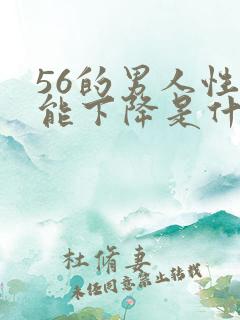 56的男人性
能下降是什
杜脩妻
未经同意禁止转载